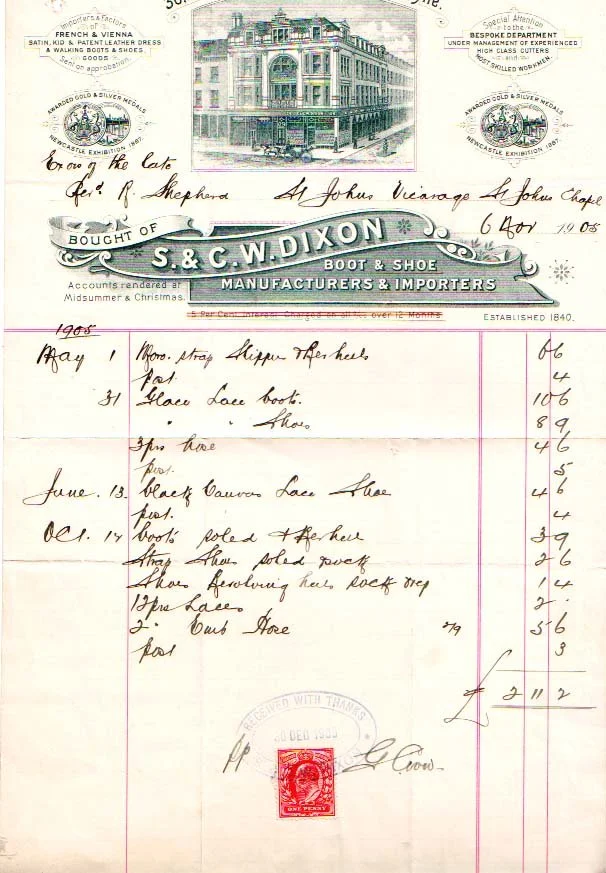 Importers & Factors
of
FRENCH & VIENNA
SATIN, KID & PATENT LEATHER DRESS
& WALKING BOOTS & SHOES
GOODS
Sent on approbation.
Special Attention
to the
BESPOKE DEPARTMENT
UNDER MANAGEMENT OF EXPERIENCED
HIGH CLASS CUTTERS
and
MOST SKILLED WORKMEN.
AWARDED GOLD & SILVER MEDALS
NEWCASTLE EXHIBITION 1887.
AWARDED GOLD & SILVER MEDALS
NEWCASTLE EXHIBITION 1887.
Exors of the late
Revd. R. Shepherd St Johns Vicarage St Johns Chapel
6 Nov 1905
BOUGHT OF
S. & C. W. DIXON
BOOT & SHOE
MANUFACTURERS & IMPORTERS
Accounts rendered at
Midsummer & Christmas.
5 Per Cent. Interest Charged on all a/cs over 12 Months
ESTABLISHED 1840.
1905
May 1 Moro. strap Slipper & Reheels 6 6
post 4
31 Glace Lace boots. 10 6
" " Shoes 8 9
3 prs hose 4 6
post. 5
June. 13. black Canvas Lace Shoe 4 6
post. 4
Oct. 14 boots soled & Reheel 3 9
Strap Shoes soled sock 2 6
Shoes Revolving heels sock 1 4
12 prs Laces 2 .
2 " Emb Hose 2/9 5 6
post 3
£ 2 11 2
RECEIVED WITH THANKS
30 DEC 1905
DIXON
pp G Crow
ONE PENNY